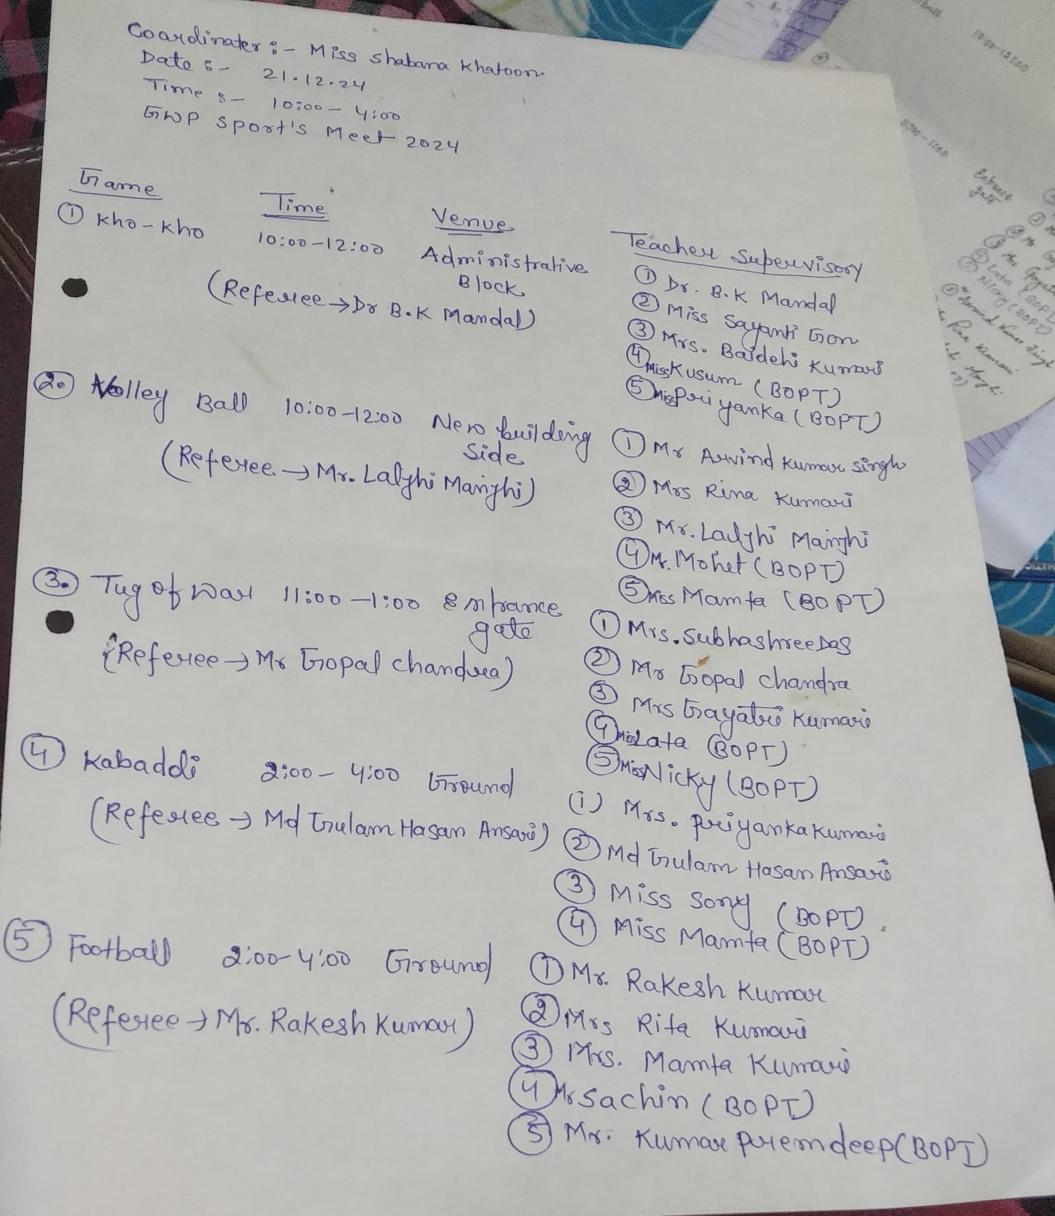 Coardinater :- Miss Shabana Khatoon
Date :- 21.12.24
Time :- 10:00 - 4:00
GWP Sport's Meet 2024
Game Time Venue Teacher Supervisory
① Kho-Kho 10:00-12:00 Administrative Block
(Referee → Dr B.K Mandal)
① Dr. B.K Mandal
② Miss Sayanti Gon
③ Mrs. Baidehi Kumari
④ Miss Kusum (BOPT)
⑤ Miss Priyanka (BOPT)
2. Volley Ball 10:00-12:00 New building side
(Referee → Mr. Laljhi Manjhi)
① Mr Arvind Kumar Singh
② Mrs Rina Kumari
③ Mr. Laljhi Manjhi
④ Mr. Mohet (BOPT)
⑤ Miss Mamta (BOPT)
3. Tug of War 11:00-1:00 Entrance gate
(Referee → Mr Gopal Chandra)
① Mrs. Subhashree Das
② Mr Gopal Chandra
③ Mrs Gayatri Kumari
④ Miss Lata (BOPT)
⑤ Miss Nicky (BOPT)
④ Kabaddi 2:00-4:00 Ground
(Referee → Md Gulam Hasan Ansari)
(i) Mrs. Priyanka Kumari
② Md Gulam Hasan Ansari
③ Miss Sony (BOPT)
④ Miss Mamta (BOPT)
⑤ Football 2:00-4:00 Ground
(Referee → Mr. Rakesh Kumar)
① Mr. Rakesh Kumar
② Mrs Rita Kumari
③ Mrs. Mamta Kumari
④ Mr Sachin (BOPT)
⑤ Mr. Kumar Premdeep (BOPT)
Entrance
gate